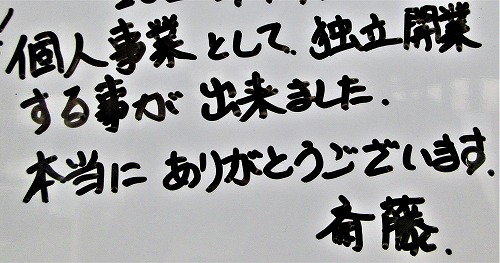 個人事業として、独立開業
する事が出来ました。
本当にありがとうございます。
斉藤.